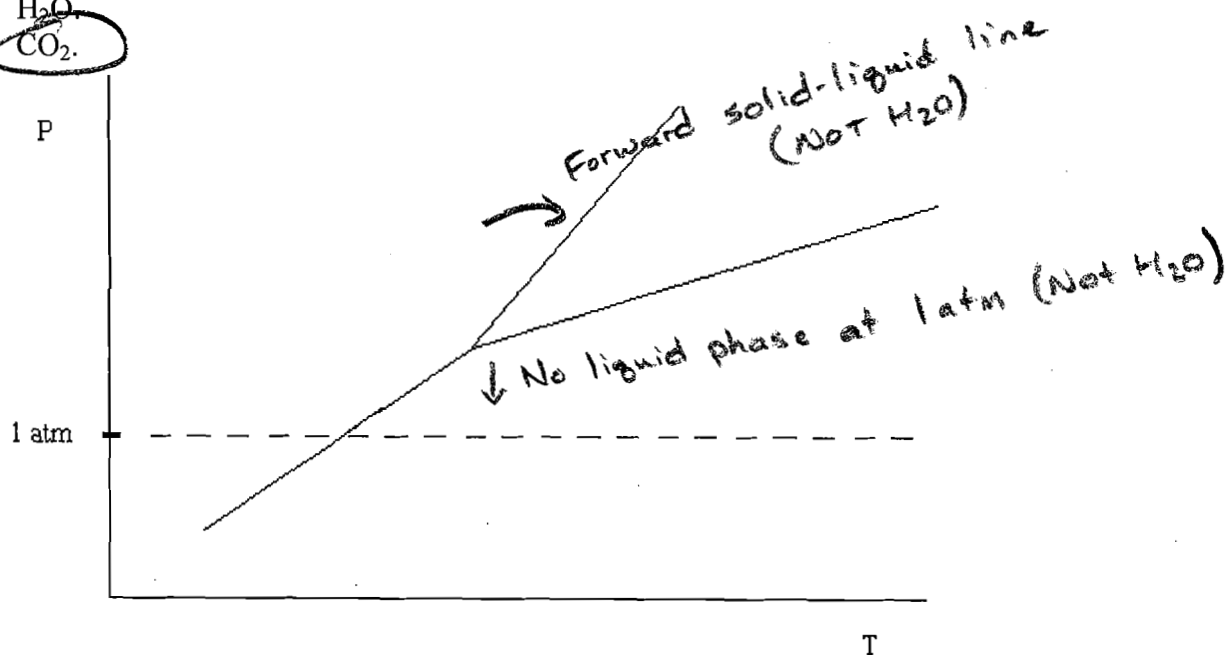 H₂O,
CO₂.
P
Forward solid-liquid line
(NOT H₂O)
↓ No liquid phase at 1 atm (Not H₂O)
1 atm
T